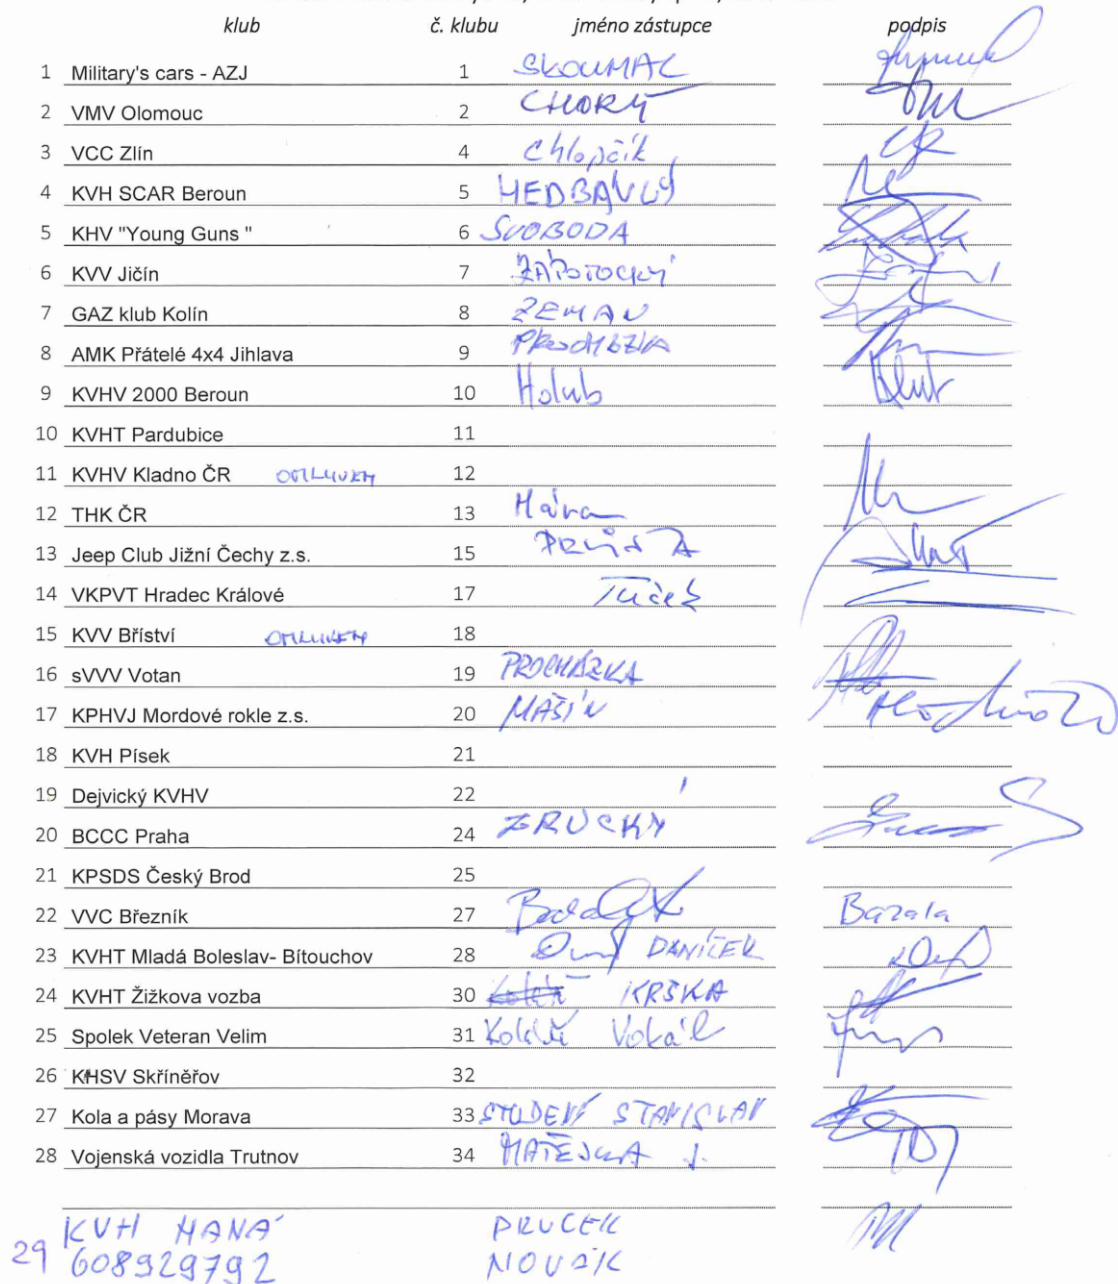 klub č. klubu jméno zástupce podpis
1 Military's cars - AZJ 1 SKOUMAL
2 VMV Olomouc 2 CHORÝ
3 VCC Zlín 4 Chlopčík
4 KVH SCAR Beroun 5 NEDBÁVLÝ
5 KHV "Young Guns " 6 SVOBODA
6 KVV Jičín 7 ZÁPOTOCKÝ
7 GAZ klub Kolín 8 ZEMAN
8 AMK Přátelé 4x4 Jihlava 9 PROCHÁZKA
9 KVHV 2000 Beroun 10 Holub
10 KVHT Pardubice 11
11 KVHV Kladno ČR OMLUVEN 12
12 THK ČR 13 Hávra
13 Jeep Club Jižní Čechy z.s. 15
14 VKPVT Hradec Králové 17 Tuček
15 KVV Bříství OMLUVEN 18
16 sVVV Votan 19 PROCHÁZKA
17 KPHVJ Mordové rokle z.s. 20 MAŠÍN
18 KVH Písek 21
19 Dejvický KVHV 22
20 BCCC Praha 24 ZRUCKÝ
21 KPSDS Český Brod 25
22 VVC Březník 27 Bazala
23 KVHT Mladá Boleslav- Bítouchov 28 DANÍČEK
24 KVHT Žižkova vozba 30 KRŠKA
25 Spolek Veteran Velim 31 Vokál
26 KHSV Skříněřov 32
27 Kola a pásy Morava 33 STUDENÝ STANISLAV
28 Vojenská vozidla Trutnov 34 MATĚJKA J.
29 KVH HANÁ PRUCEK
608929792 NOVÁK